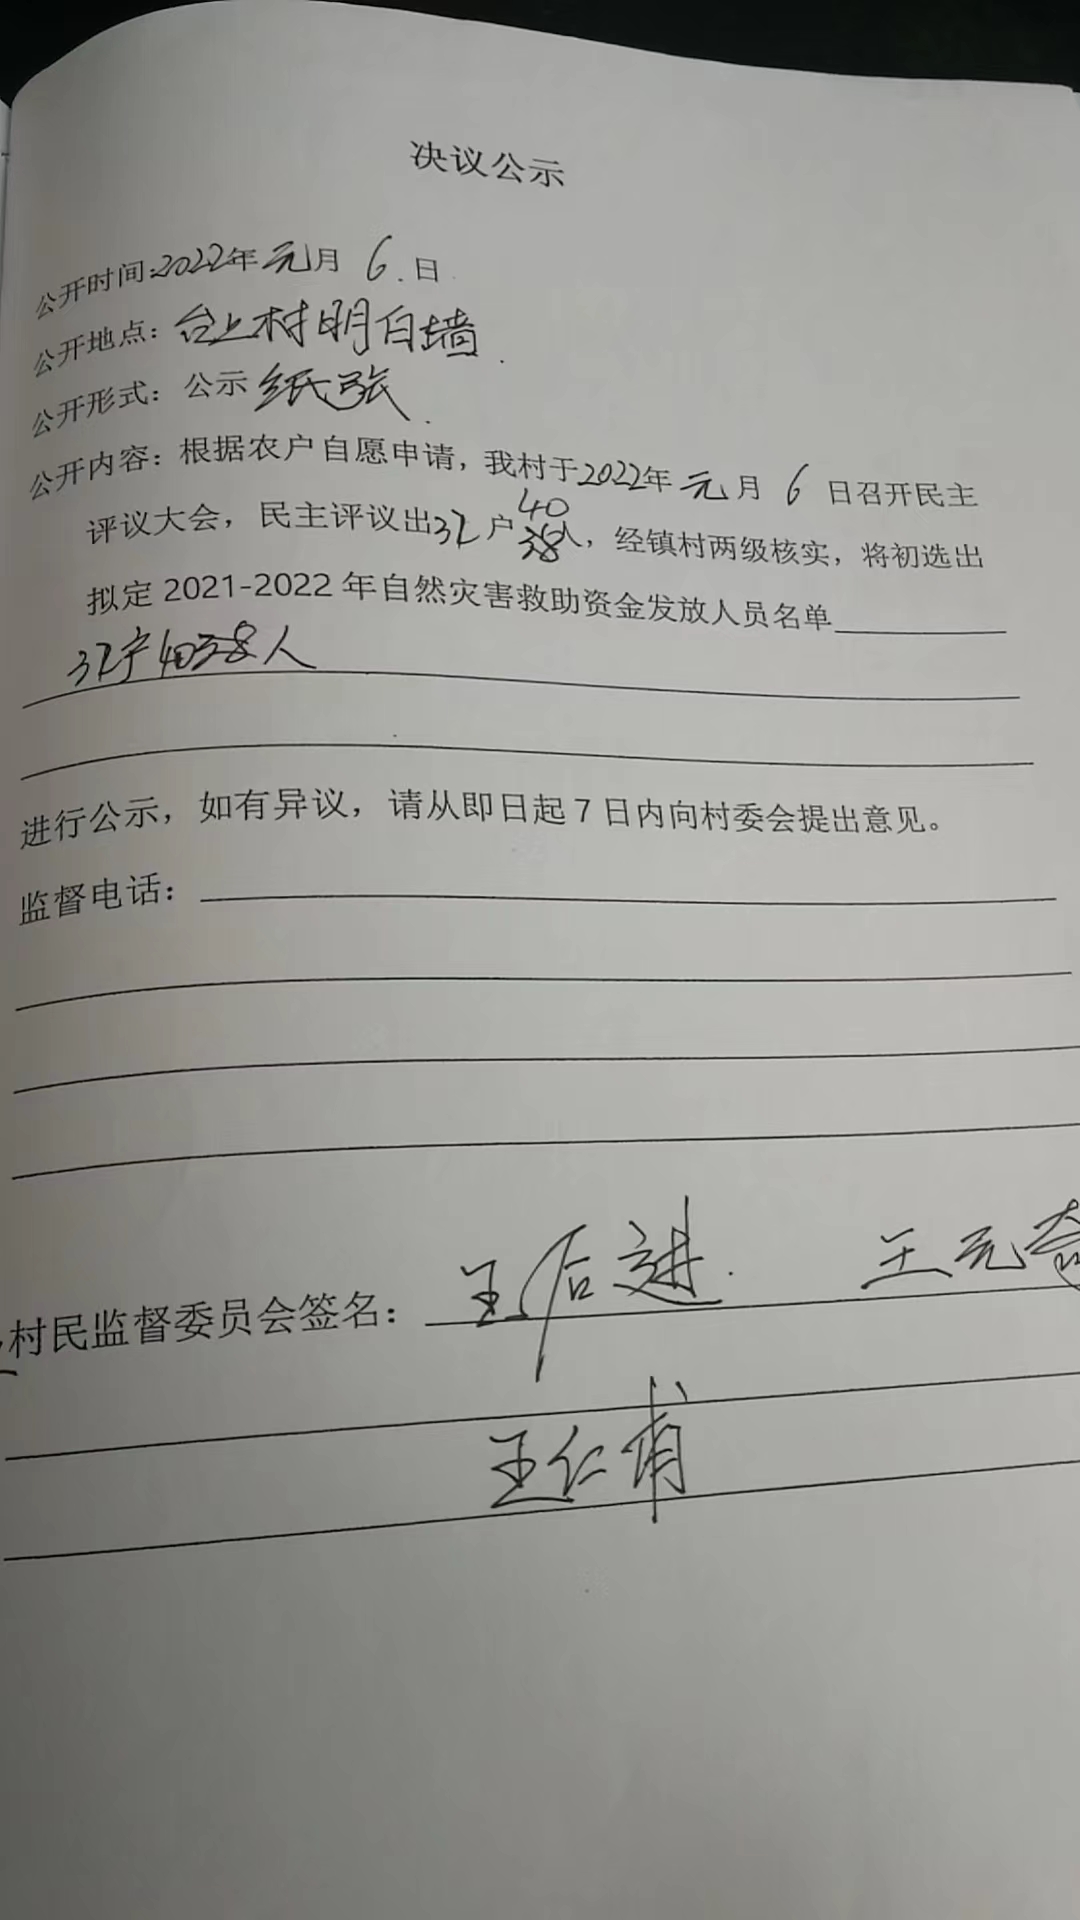 决议公示
公开时间:2022年元月6.日
公开地点：台上村明白墙.
公开形式：公示纸张.
公开内容：根据农户自愿申请，我村于2022年元月6日召开民主
40
评议大会，民主评议出32户38人，经镇村两级核实，将初选出
拟定2021-2022年自然灾害救助资金发放人员名单
32户4038人
进行公示，如有异议，请从即日起7日内向村委会提出意见。
监督电话：
村民监督委员会签名：王后进. 王元奇
王仁甫